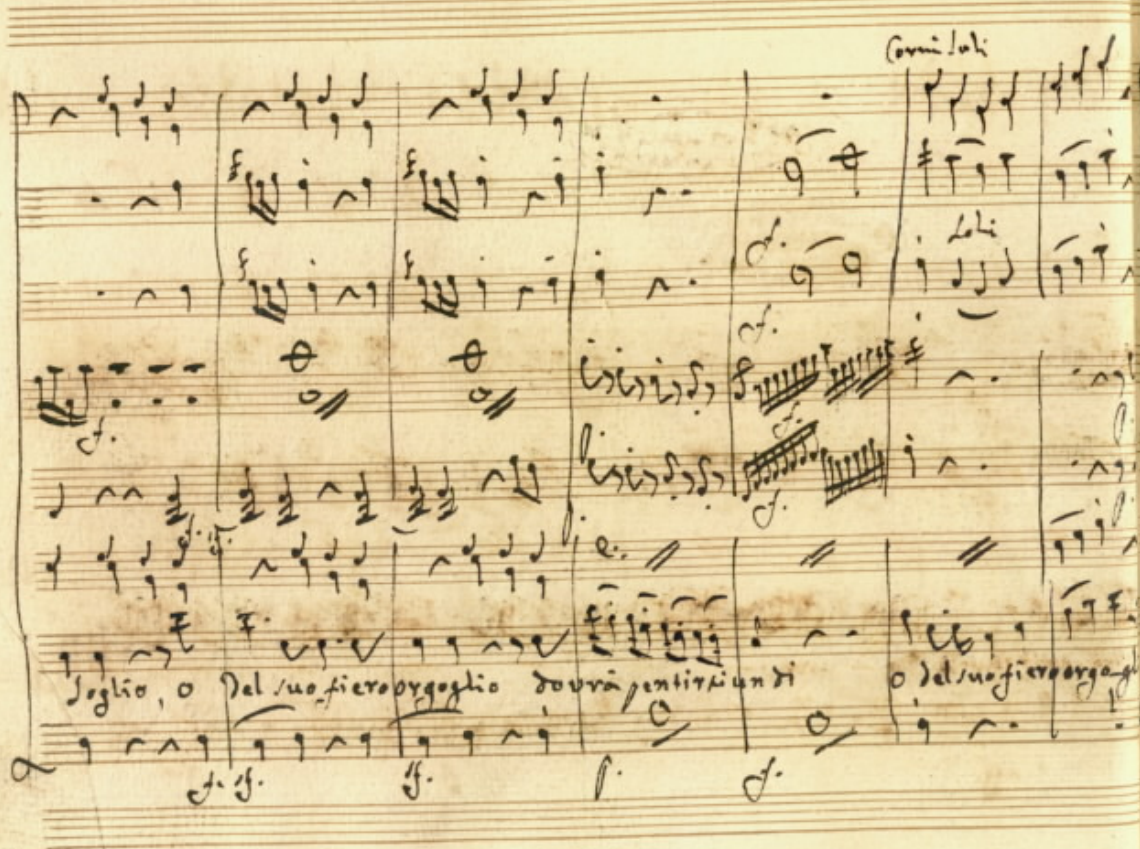 Corni Soli
Soli
f.
f.
f.
f.
f.
soglio, o Del suo fiero orgoglio dovrà pentirsi un di o del suo fiero orgo-gl
f. sf. sf. p. f.